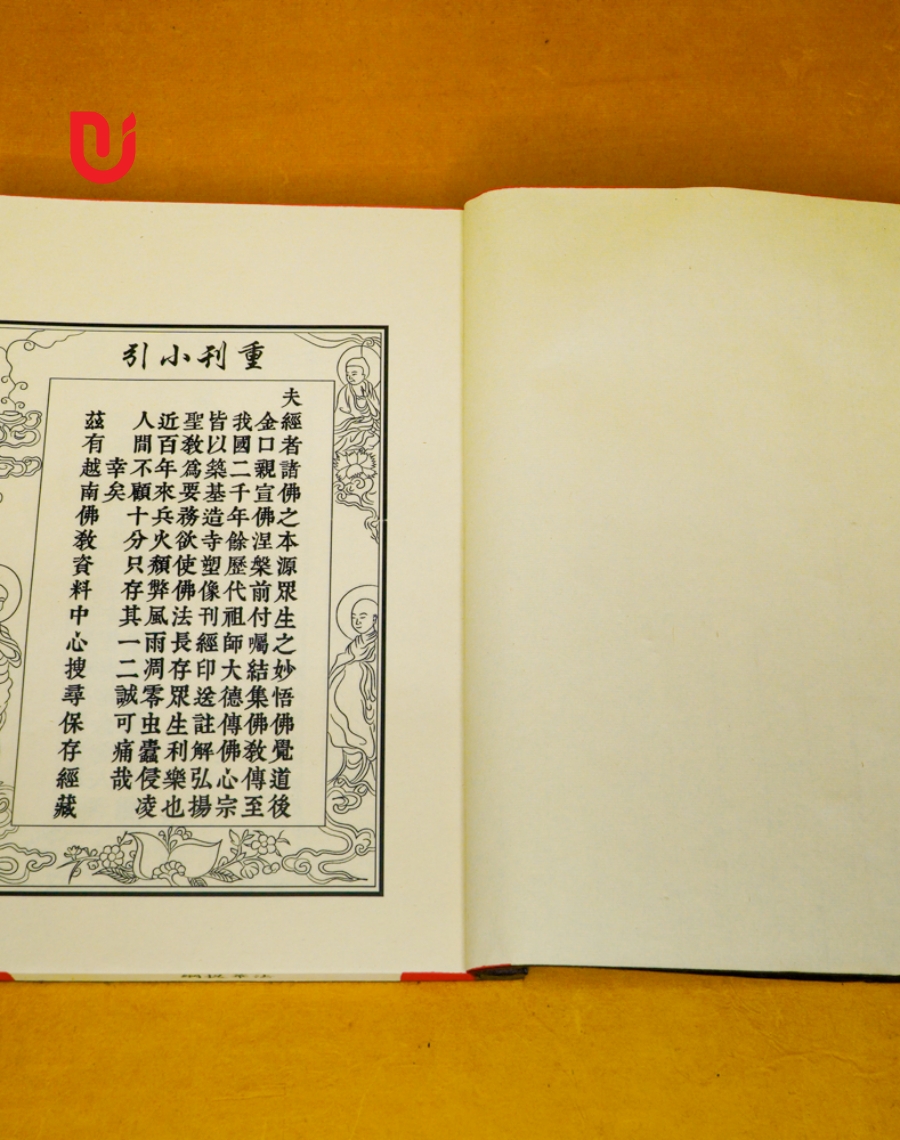 重刊小引
夫經者諸佛之本源眾生之妙悟佛覺道後
金口親宣佛涅槃前付囑結集佛教傳至
我國二千年餘歷代祖師大德傳佛心宗
皆以築基造寺塑像刊經印送註解弘揚
聖教爲要務欲使佛法長存眾生利樂也
近百年來兵火頹弊風雨凋零虫蠹侵凌
人間不顧十分只存其一二誠可痛哉
幸矣
茲有越南佛教資料中心搜尋保存經藏